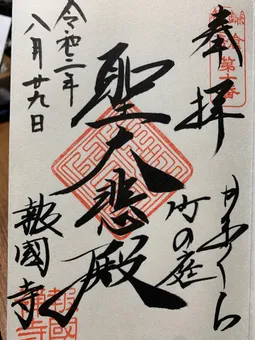 奉拝
かまくら
竹の庭
聖大悲殿
報國寺
令和二年
八月廿九日
報國禅寺